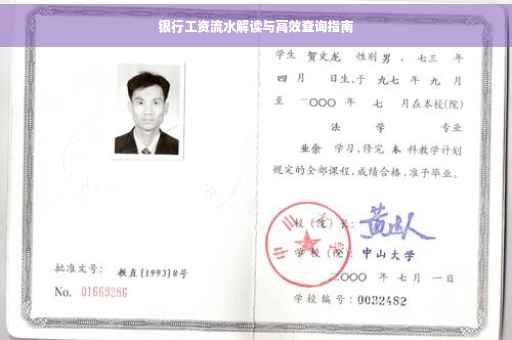 银行工资流水解读与高效查询指南
学生 贺文龙 性别 男 、七三 年
四 月 日生,于 九七 年 九 月
至 二〇〇〇 年 七 月在本校(院)
法 学 专业
业余 学习,修完 本 科教学计划
规定的全部课程,成绩合格,准予毕业。
校(院)长:
学 校(院): 中山大学
二〇〇〇 年 七 月 一 日
学校编号: 0032482
批准文号: 教直(1993)8号
No. 01669286